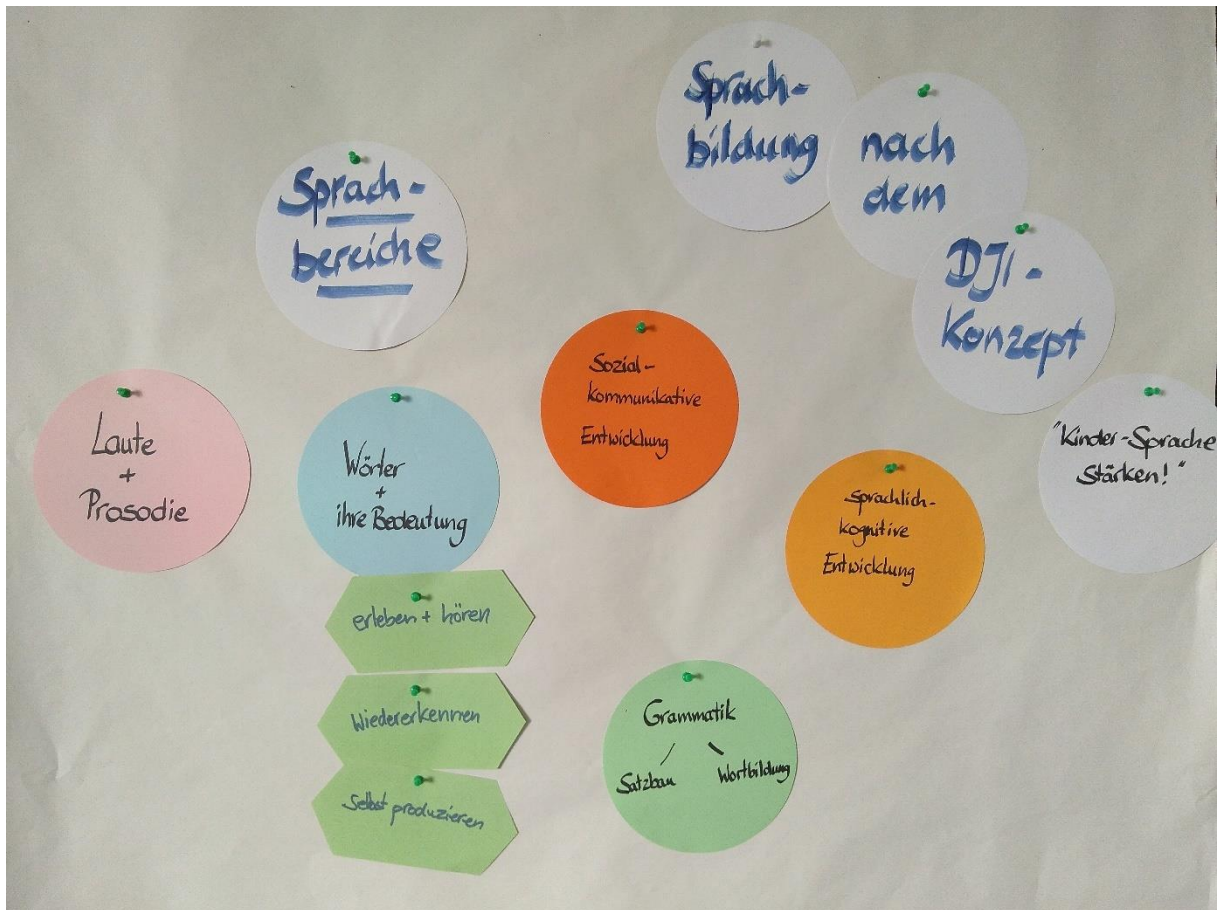 Sprach-
bildung
nach
dem
DJI-
Konzept
"Kinder-Sprache
Stärken!"
Sprach-
bereiche
Laute
+
Prosodie
Wörter
+
ihre Bedeutung
erleben + hören
Wiedererkennen
Selbst produzieren
Sozial-
kommunikative
Entwicklung
sprachlich-
kognitive
Entwicklung
Grammatik
Satzbau Wortbildung